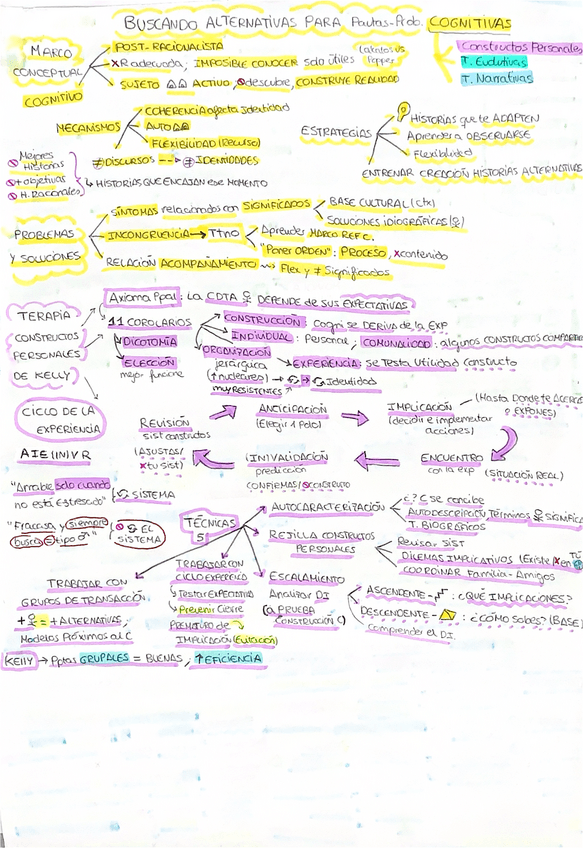 BUSCANDO ALTERNATIVAS PARA Pautas-Prob. COGNITIVAS
Constructos Personales
T. Evolutivas
T. Narrativas
MARCO
CONCEPTUAL
COGNITIVO
POST-RACIONALISTA
X R adecuada; IMPOSIBLE CONOCER solo útiles
Lakatos vs
Popper
SUJETO ACTIVO, descubre, CONSTRUYE REALIDAD
MECANISMOS
COHERENCIA afecta Identidad
AUTO
FLEXIBILIDAD (Recurso)
≠ DISCURSOS --> ≠ IDENTIDADES
ESTRATEGIAS
HISTORIAS que te ADAPTEN
Aprender a OBSERVARSE
Flexibilidad
ENTRENAR CREACIÓN HISTORIAS ALTERNATIVAS
Mejores
Historias
+ objetivas
H. Racionales
↳ HISTORIAS QUE ENCAJAN ese MOMENTO
PROBLEMAS
Y SOLUCIONES
SÍNTOMAS relacionados con SIGNIFICADOS
BASE CULTURAL (ctx)
SOLUCIONES IDIOGRÁFICAS
INCONGRUENCIA → Ttno
Aprender MARCO REF C.
"Poner ORDEN": PROCESO, x contenido
RELACIÓN ACOMPAÑAMIENTO Flex y ≠ Significados
TERAPIA
CONSTRUCTOS
PERSONALES
DE KELLY
Axioma Ppal: La CDTA DEPENDE DE SUS EXPECTATIVAS
11 COROLARIOS
DICOTOMÍA
ELECCIÓN
mejor funcione
CONSTRUCCIÓN: Cogni se DERIVA de la EXP
INDIVIDUAL: Personal; COMUNALIDAD: algunos CONSTRUCTOS
ORGANIZACIÓN
jerárquica
(↑ nucleares) → Identidad
muy RESISTENTES
EXPERIENCIA: se Testa Utilidad constructo
CICLO DE LA
EXPERIENCIA
AIE(IN)VR
ANTICIPACIÓN
(Elegir 1 Polo)
IMPLICACIÓN
(decidir e implementar
acciones)
(Hasta Donde te ACERCAS
o EXPONES)
ENCUENTRO
con la exp
(SITUACIÓN REAL)
(IN)VALIDACIÓN
predicción
CONFIRMAS / CONSTRUCTO
REVISIÓN
sist constructos
(AJUSTAS/
x tu sist)
"Amable solo cuando
no está estresado"
SISTEMA
"Fracasa y siempre
busca = tipo"
EL
SISTEMA
TÉCNICAS
5
AUTOCARACTERIZACIÓN
¿? C se concibe
AUTODESCRIPCIÓN, Términos
T. BIOGRÁFICOS
REJILLA CONSTRUCTOS
PERSONALES
Revisa SIST
DILEMAS IMPLICATIVOS (Existe x en
COORDINAR Familia-Amigos
TRABAJAR CON
GRUPOS DE TRANSACCIÓN
+ = + ALTERNATIVAS;
Modelos Próximos al C
TRABAJAR CON
CICLO EXPERIENCIA
Testar Expectativa
Prevenir Cierre
PREMATURO de
IMPLICACIÓN (Evitación)
ESCALAMIENTO
Analizar DI
(a PRUEBA
CONSTRUCCIÓN C)
ASCENDENTE - : ¿QUÉ IMPLICACIONES?
DESCENDENTE - : ¿CÓMO Sabes? (BASE)
comprender el DI.
KELLY → Pptas GRUPALES = BUENAS, ↑ EFICIENCIA